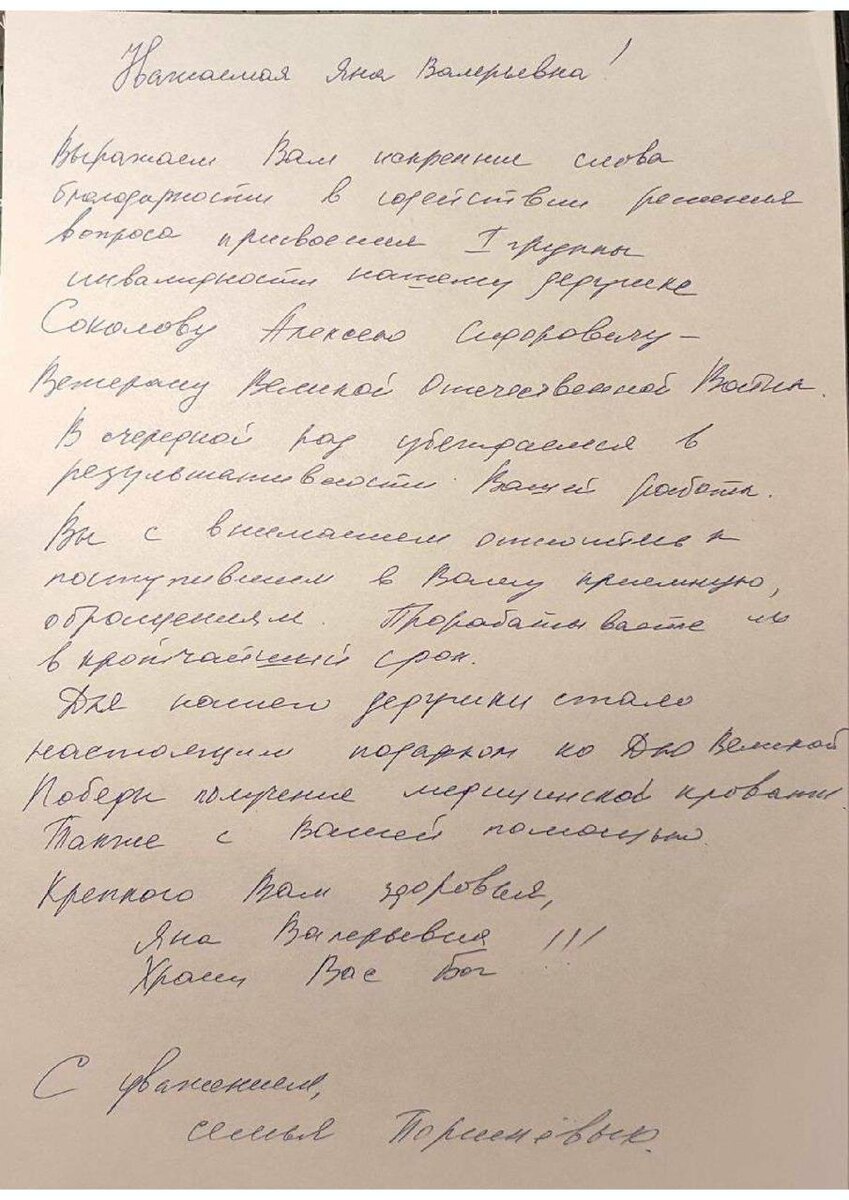 Уважаемая Яна Валерьевна!
Выражаем Вам искренние слова
благодарности в содействии решения
вопроса присвоения I группы
инвалидности нашему дедушке
Соколову Алексею Сидоровичу –
Ветерану Великой Отечественной Войны.
В очередной раз убеждаемся в
результативности Вашей работы.
Вы с вниманием относитесь к
поступившим в Вашу приемную,
обращениям. Прорабатываете их
в кротчайший срок.
Для нашего дедушки стало
настоящим подарком ко Дню Великой
Победы получение медицинской кровати.
Также с Вашей помощью.
Крепкого Вам здоровья,
Яна Валерьевна !!!
Храни Вас Бог
С уважением,
семья